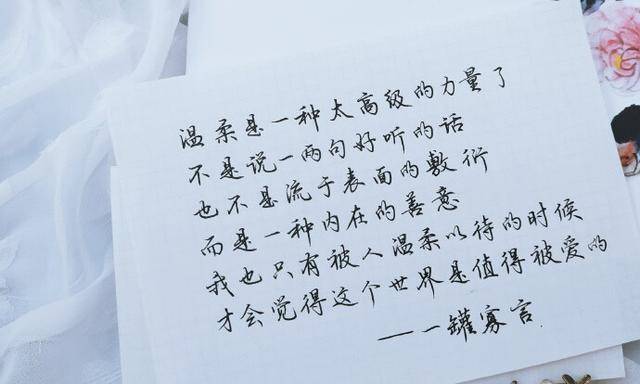 温柔是一种太高级的力量了
不是说一两句好听的话
也不是流于表面的敷衍
而是一种内在的善意
我也只有被人温柔以待的时候
才会觉得这个世界是值得被爱的
——一罐寡言